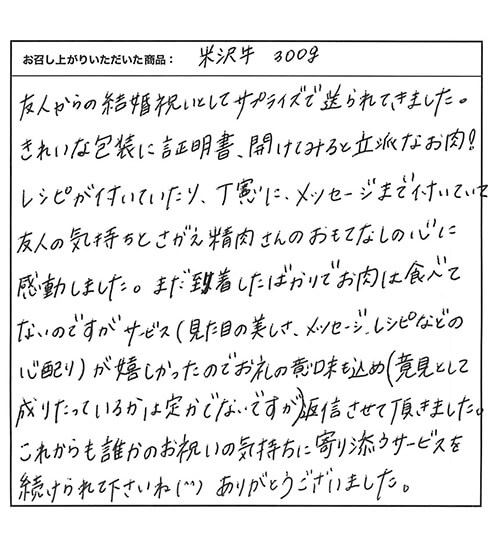 お召し上がりいただいた商品： 米沢牛 300g
友人からの結婚祝いとしてサプライズで送られてきました。
きれいな包装に証明書、開けてみると立派なお肉！
レシピが付いていたり、丁寧に、メッセージまで付いていて
友人の気持ちとさがえ精肉さんのおもてなしの心に
感動しました。まだ到着したばかりでお肉は食べて
ないのですがサービス(見た目の美しさ、メッセージ、レシピなどの
心配り)が嬉しかったのでお礼の意味も込め(意見として
成りたっているかは定かでないですが)返信させて頂きました。
これからも誰かのお祝いの気持ちに寄り添うサービスを
続けられて下さいね(^^) ありがとうございました。